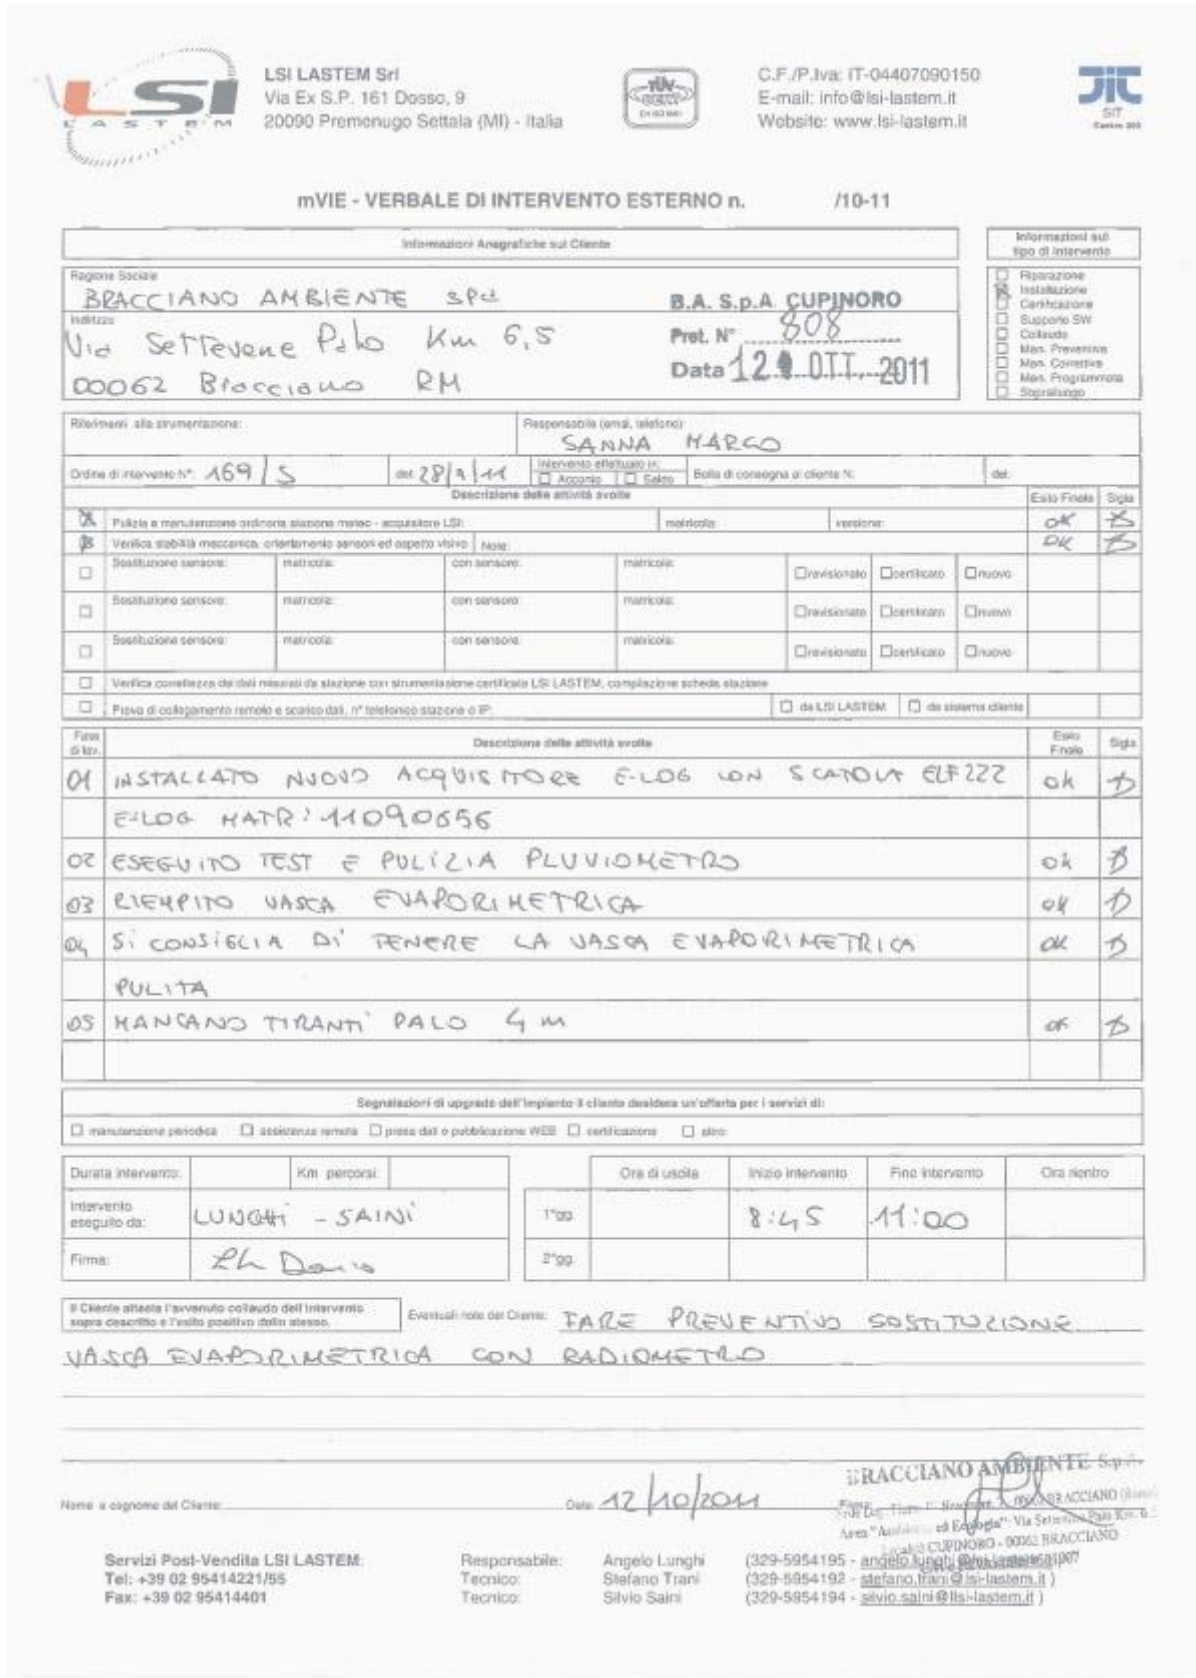 LSI
LASTEM
LSI LASTEM Srl
Via Ex S.P. 161 Dosso, 9
20090 Premenugo Settala (MI) - Italia
TÜV
C.F./P.Iva: IT-04407090150
E-mail: info@lsi-lastem.it
Website: www.lsi-lastem.it
SIT
mVIE - VERBALE DI INTERVENTO ESTERNO n. /10-11
Informazioni Anagrafiche sul Cliente
Informazioni sul
tipo di Intervento
Ragione Sociale
BRACCIANO AMBIENTE SPA
Indirizzo
Via Settevene Palo Km 6,5
00062 Bracciano RM
B.A. S.p.A. CUPINORO
Prot. N° 808
Data 12 OTT. 2011
Riparazione
Installazione
Certificazione
Supporto SW
Collaudo
Man. Preventiva
Man. Correttiva
Man. Programmata
Sopralluogo
Riferimenti alla strumentazione:
Responsabile (email, telefono):
SANNA MARCO
Ordine di intervento N°: 169/S del: 28/9/11 Intervento effettuato in: Acconto Saldo Bolla di consegna al cliente N: del:
Descrizione delle attività svolte Esito Finale Sigla
Pulizia e manutenzione ordinaria stazione meteo - acquisitore LSI: matricola: versione: OK
Verifica stabilità meccanica, orientamento sensori ed aspetto visivo Note: OK
Sostituzione sensore: matricola: con sensore: matricola: revisionato certificato nuovo
Sostituzione sensore: matricola: con sensore: matricola: revisionato certificato nuovo
Sostituzione sensore: matricola: con sensore: matricola: revisionato certificato nuovo
Verifica correttezza dei dati misurati da stazione con strumentazione certificata LSI LASTEM, compilazione scheda stazione
Prova di collegamento remoto e scarico dati, n° telefonico stazione o IP: da LSI LASTEM da sistema cliente
Fase di lav. Descrizione delle attività svolte Esito Finale Sigla
01 INSTALLATO NUOVO ACQUISITORE E-LOG CON SCATOLA ELF222 ok
E-LOG MATR: 11090656
02 ESEGUITO TEST E PULIZIA PLUVIOMETRO ok
03 RIEMPITO VASCA EVAPORIMETRICA ok
04 Si CONSIGLIA Di TENERE LA VASCA EVAPORIMETRICA OK
PULITA
05 MANCANO TIRANTI PALO 4 m ok
Segnalazioni di upgrade dell'impianto il cliente desidera un'offerta per i servizi di:
manutenzione periodica assistenza remota presa dati o pubblicazione WEB certificazione altro:
Durata intervento: Km percorsi: Ora di uscita Inizio intervento Fine Intervento Ora rientro
Intervento eseguito da: LUNGHI - SAINI 1°gg. 8:45 11:00
Firma: 2°gg.
Il Cliente attesta l'avvenuto collaudo dell'intervento
sopra descritto e l'esito positivo dello stesso.
Eventuali note del Cliente: FARE PREVENTIVO SOSTITUZIONE
VASCA EVAPORIMETRICA CON RADIOMETRO
BRACCIANO AMBIENTE S.p.A.
Nome e cognome del Cliente: Data: 12/10/2011
CUPINORO - 00062 BRACCIANO
Servizi Post-Vendita LSI LASTEM: Responsabile: Angelo Lunghi (329-5954195 -
Tel: +39 02 95414221/55 Tecnico: Stefano Trani (329-5954192 - stefano.trani@lsi-lastem.it )
Fax: +39 02 95414401 Tecnico: Silvio Saini (329-5954194 - silvio.saini@lsi-lastem.it )